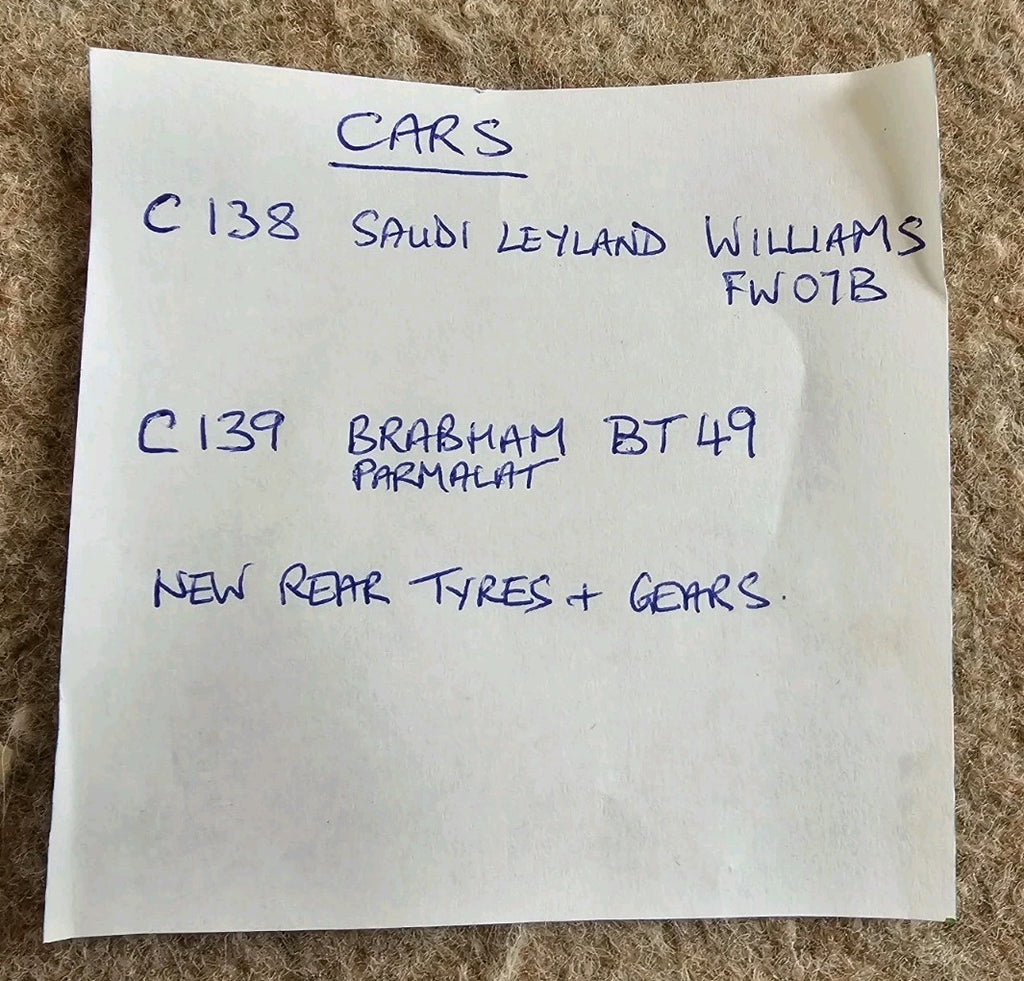 CARS
C138 SAUDI LEYLAND WILLIAMS
FW07B
C139 BRABHAM BT49
PARMALAT
NEW REAR TYRES + GEARS.